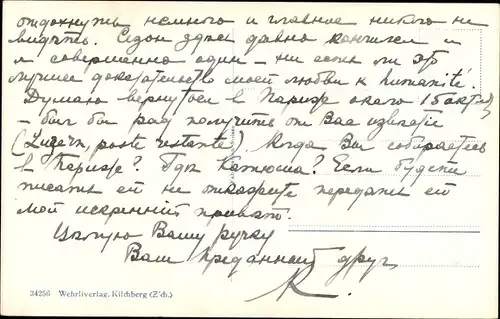 отдохнуть немного и главное никого не
видеть. Сезон здесь давно кончился и
я совершенно один – не есть ли это
лучшее доказательство моей любви к humanité.
Думаю вернуться в Париж около 15 октяб,
– был бы рад получить от Вас известие
(Luzern, poste restante). Когда Вы собираетесь
в Париж? Где Катюша? Если будете
писать ей не откажите передать ей
мой искренний привет.
Целую Вашу ручку
Ваш преданный друг
R.
34256 Wehrliverlag, Kilchberg (Z'ch.)